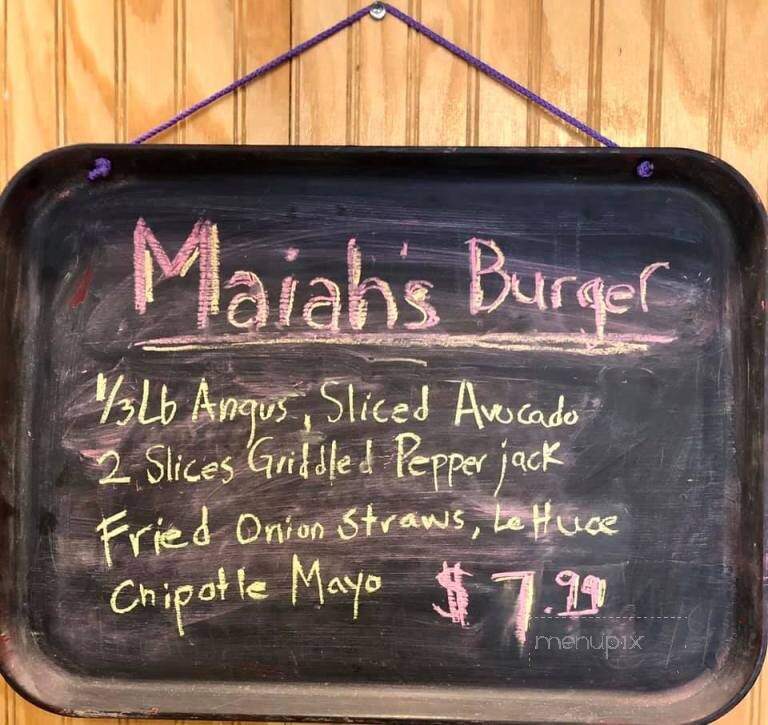 Maiah's Burger
1/3 Lb Angus, Sliced Avocado
2 Slices Griddled Pepper jack
Fried Onion Straws, Lettuce
Chipotle Mayo $7.99
menupix